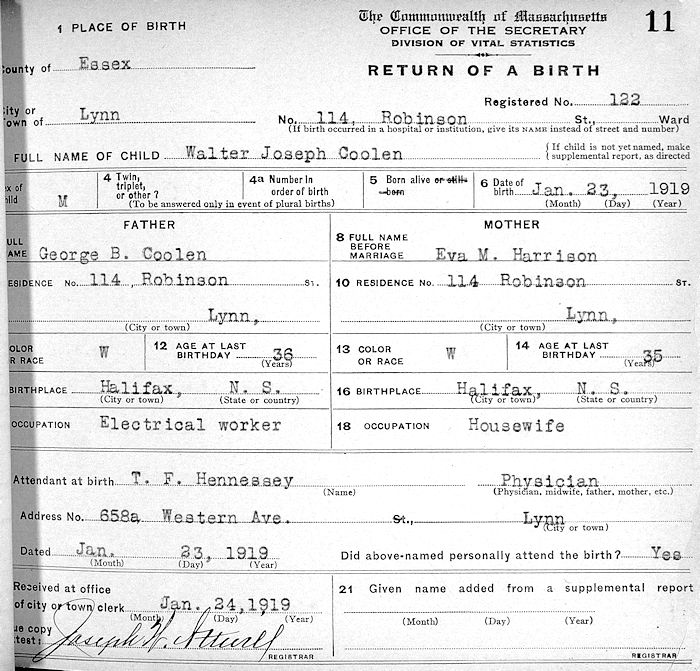 The Commonwealth of Massachusetts 11
1 PLACE OF BIRTH OFFICE OF THE SECRETARY
DIVISION OF VITAL STATISTICS
County of Essex
RETURN OF A BIRTH
Registered No. 122
City or
Town of Lynn No. 114, Robinson St., Ward
(If birth occurred in a hospital or institution, give its NAME instead of street and number)
FULL NAME OF CHILD Walter Joseph Coolen { If child is not yet named, make
supplemental report, as directed
Sex of
Child M
4 Twin,
triplet,
or other ?
4a Number in
order of birth
(To be answered only in event of plural births)
5 Born alive or still-
born
6 Date of
birth Jan. 23, 1919
(Month) (Day) (Year)
FATHER
FULL
NAME George B. Coolen
RESIDENCE No. 114, Robinson ST.
Lynn,
(City or town)
COLOR
OR RACE W
12 AGE AT LAST
BIRTHDAY 36
(Years)
BIRTHPLACE Halifax, N. S.
(City or town) (State or country)
OCCUPATION Electrical worker
MOTHER
8 FULL NAME
BEFORE
MARRIAGE Eva M. Harrison
10 RESIDENCE No. 114 Robinson ST.
Lynn,
(City or town)
13 COLOR
OR RACE W
14 AGE AT LAST
BIRTHDAY 35
(Years)
16 BIRTHPLACE Halifax, N. S.
(City or town) (State or country)
18 OCCUPATION Housewife
Attendant at birth T. F. Hennessey Physician
(Name) (Physician, midwife, father, mother, etc.)
Address No. 658a Western Ave. St., Lynn
(City or town)
Dated Jan. 23, 1919 Did above-named personally attend the birth? Yes
(Month) (Day) (Year)
Received at office
of city or town clerk Jan. 24, 1919
(Month) (Day) (Year)
true copy
Attest: Joseph W. Attwill
REGISTRAR
21 Given name added from a supplemental report
(Month) (Day) (Year)
REGISTRAR